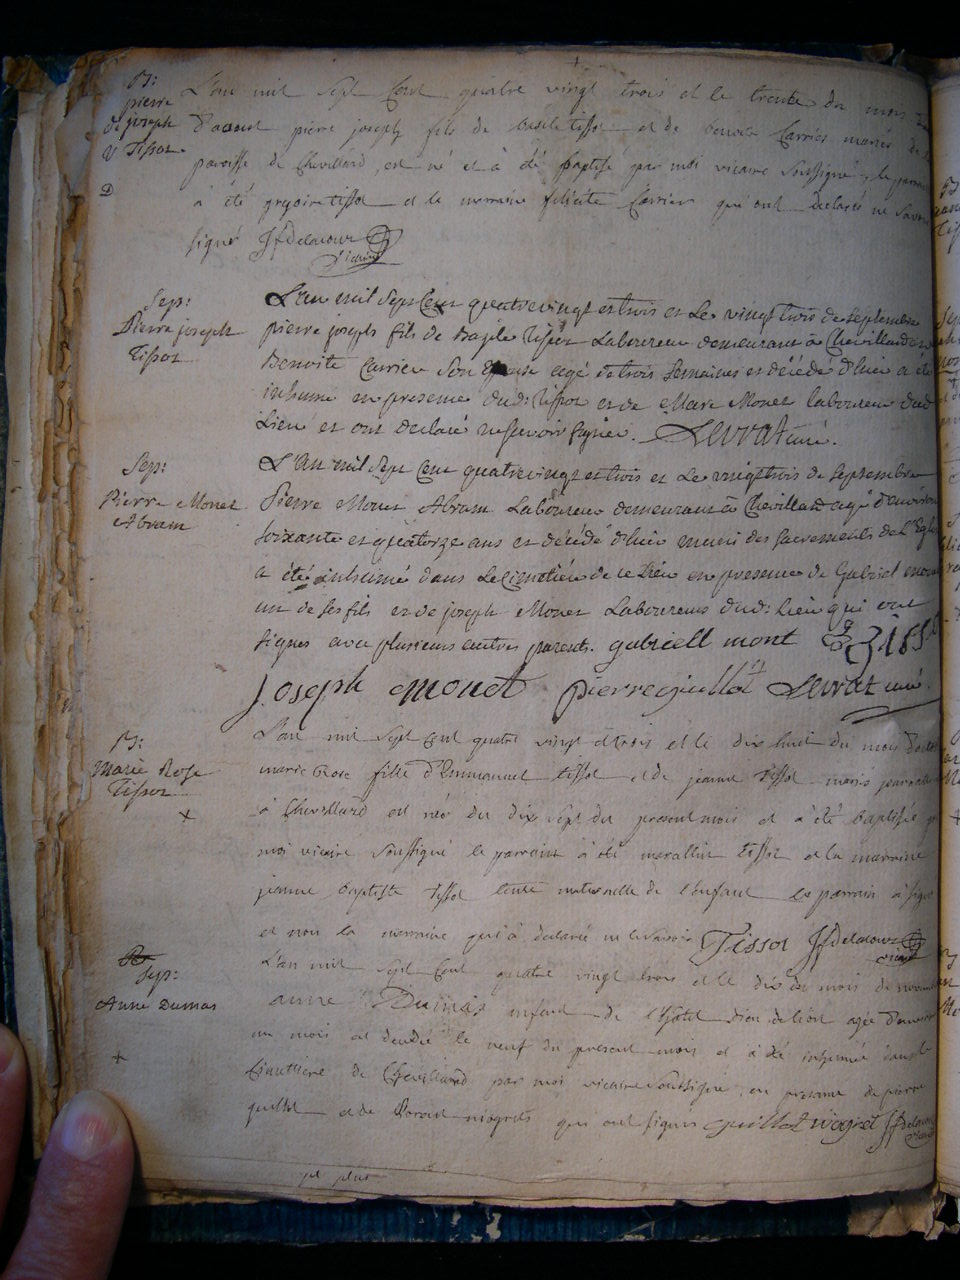 B:
pierre
joseph
Tissot
L'an mil sept Cent quatre vingt trois et le trente du mois
d'aoust pierre joseph fils de basile tissot et de benoite Carrier mariés de la
paroisse de Chevillard, est né et à été baptisé par moi vicaire soussigné, le parrain
à été gregoire tissot et la marraine felicité Carrier qui ont declaré ne savoir
signé Jfdelacour
vicaire
Sep:
Pierre joseph
Tissot
L'an mil Sept Cent quatrevingt et trois et Le vingt trois de septembre
pierre joseph fils de Basile Tissot Laboureur demeurant a Chevillard et de
Benoite Carrier Son Epouse agé de trois Semaines et décédé d'hier a été
inhumé en presence dud: Tissot et de Marc Monet laboureur dud
Lieu et ont declaré ne scavoir signer. Levrat curé.
Sep:
Pierre Monet
Abram
L'An mil Sept Cent quatrevingt et trois et Le vingt trois de septembre
Pierre Monet Abram Laboureur demeurant à Chevillard agé d'environ
soixante et quatorze ans et décédé d'hier muni des sacrements de L'Eglise
a été inhumé dans Le Cimetière de ce Lieu en presence de Gabriel monet
un de ses fils et de joseph Monet Laboureurs dud: Lieu qui ont
signés avec plusieurs autres parents. gabriell mont
Joseph monet pierre guillot Levrat curé.
B:
Marie Rose
Tissot
L'an mil sept cent quatre vingt et trois et le dix huit du mois d'octobre
marie Rose fille d'Emmanuel tissot et de jeanne tissot mariés
à Chevillard est née du dix sept du present mois et à été baptisée par
moi vicaire soussigné le parrain à été tissot et la marraine
jeanne baptiste tissot tante maternelle de l'enfant le parrain à signé
et non la marraine qui à declaré ne le savoir Tissot Jfdelacour
vicaire
Sep:
Anne Dumas
L'an mil sept Cent quatre vingt trois et le dix du mois de novembre
anne Dumas enfant de l'hotel dieu de lion agée d'environ
un mois et decedé le neuf du present mois et à été inhumée dans le
Cimetière de Chevillard par moi vicaire soussigné en presence de pierre
guillot et de qui ont signés guillot Jfdelacour